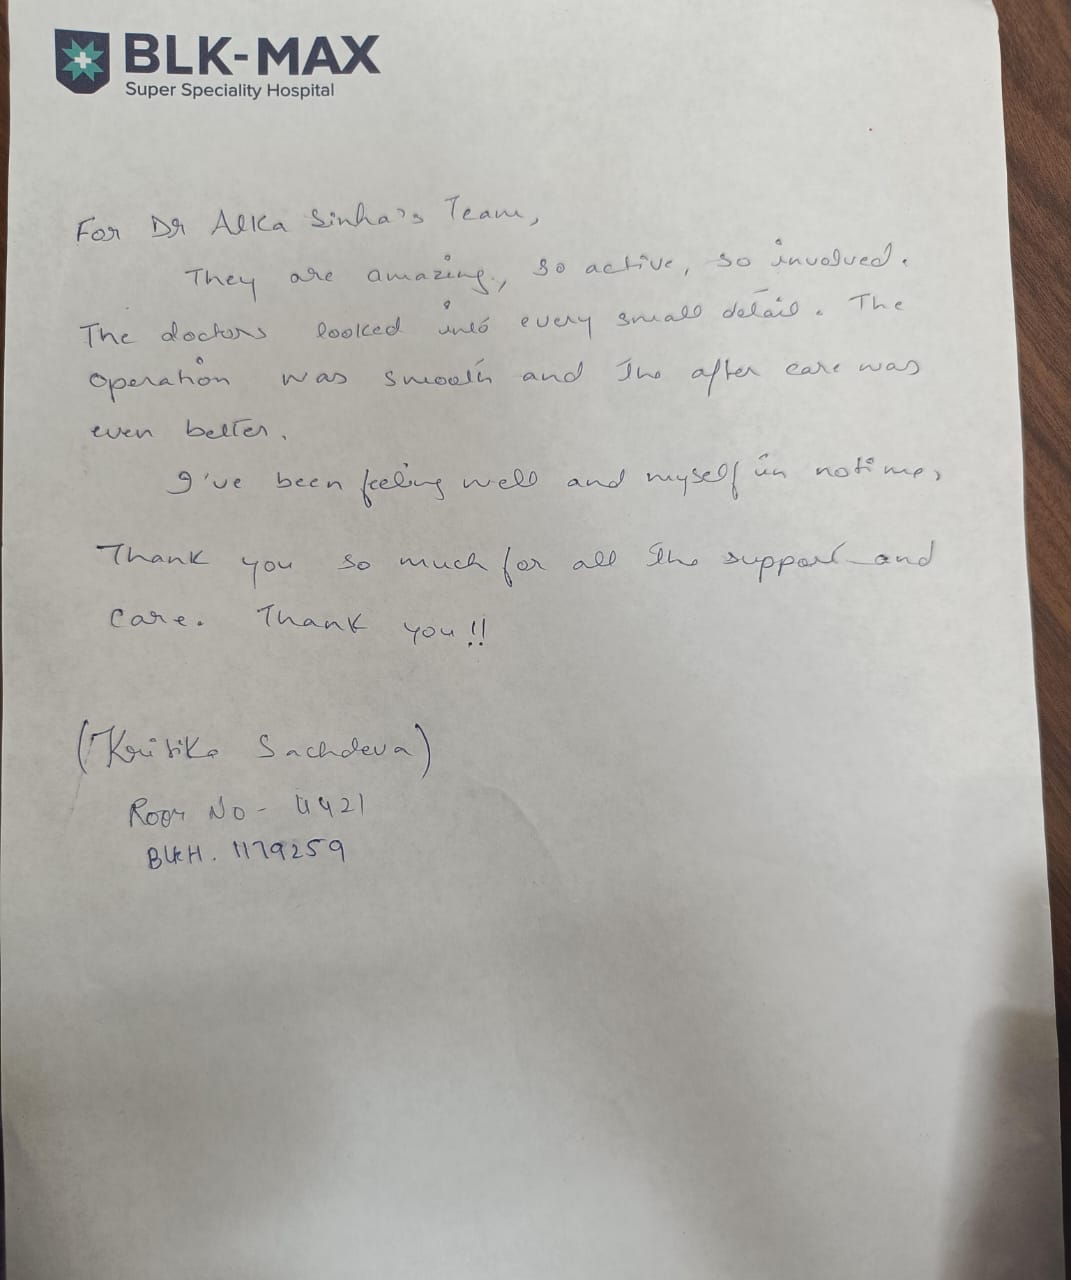 BLK-MAX
Super Speciality Hospital
For Dr Alka Sinha's Team,
They are amazing, so active, so involved.
The doctors looked into every small detail. The
operation was smooth and the after care was
even better.
I've been feeling well and myself in no time,
Thank you so much for all the support and
care. Thank you!!
(Kritika Sachdeva)
Room No - 4421
BLKH. 1179259